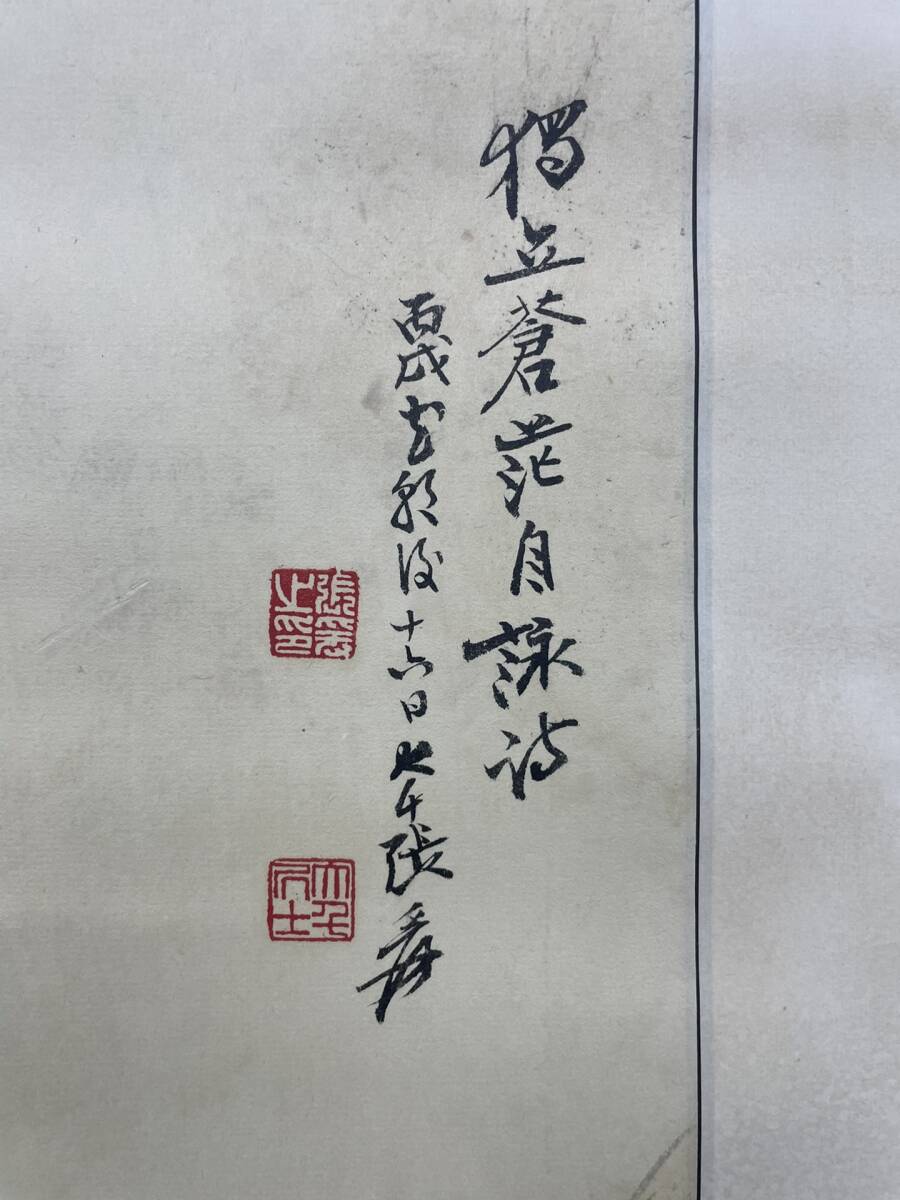 獨立蒼茫自詠詩
丙戌花朝後十六日大千張爰
張爰之印
大千居士